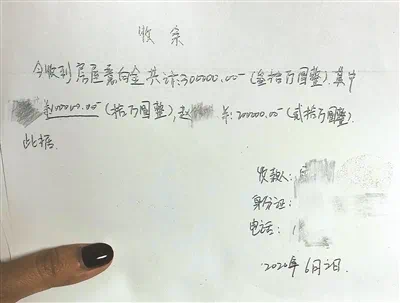 收条
今收到房屋意向金共计:300000.00-(叁拾万圆整).其中
羊:100000.00-(拾万圆整),赵 羊:200000.00-(贰拾万圆整).
此据.
收款人:
身份证:
电话:1
2020年6月2日